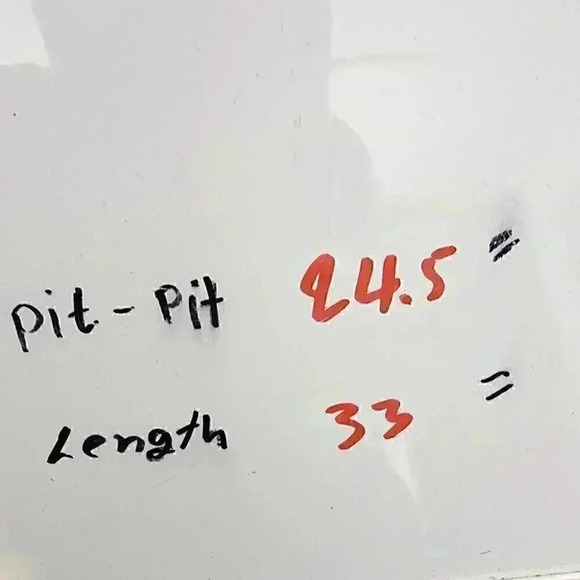 pit - Pit 24.5 "
Length 33 "